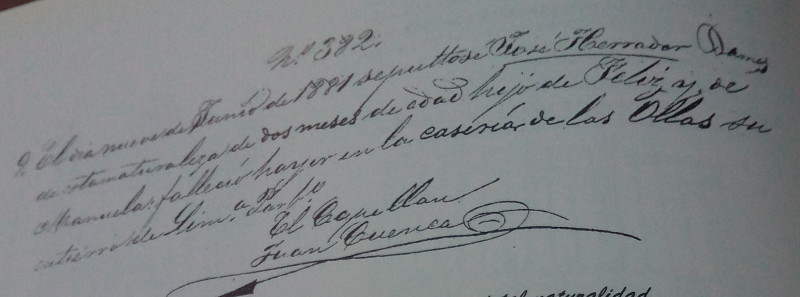 Nº 382.
9. El dia nueve de Junio de 1881 sepultose José Herrador Damas
de esta naturaleza de dos meses de edad hijo de Feliz, y, de
Manuela: falleció hayer en la caseria, de las Ollas su
entierro de Lim.ª
El Capellan
Juan Cuenca
naturalidad